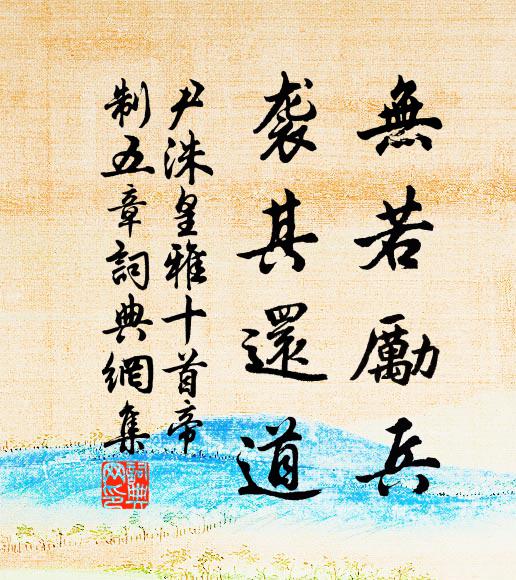 無若勵兵
袭其還道
尹洙皇雅十首帝
制五章詞典網集